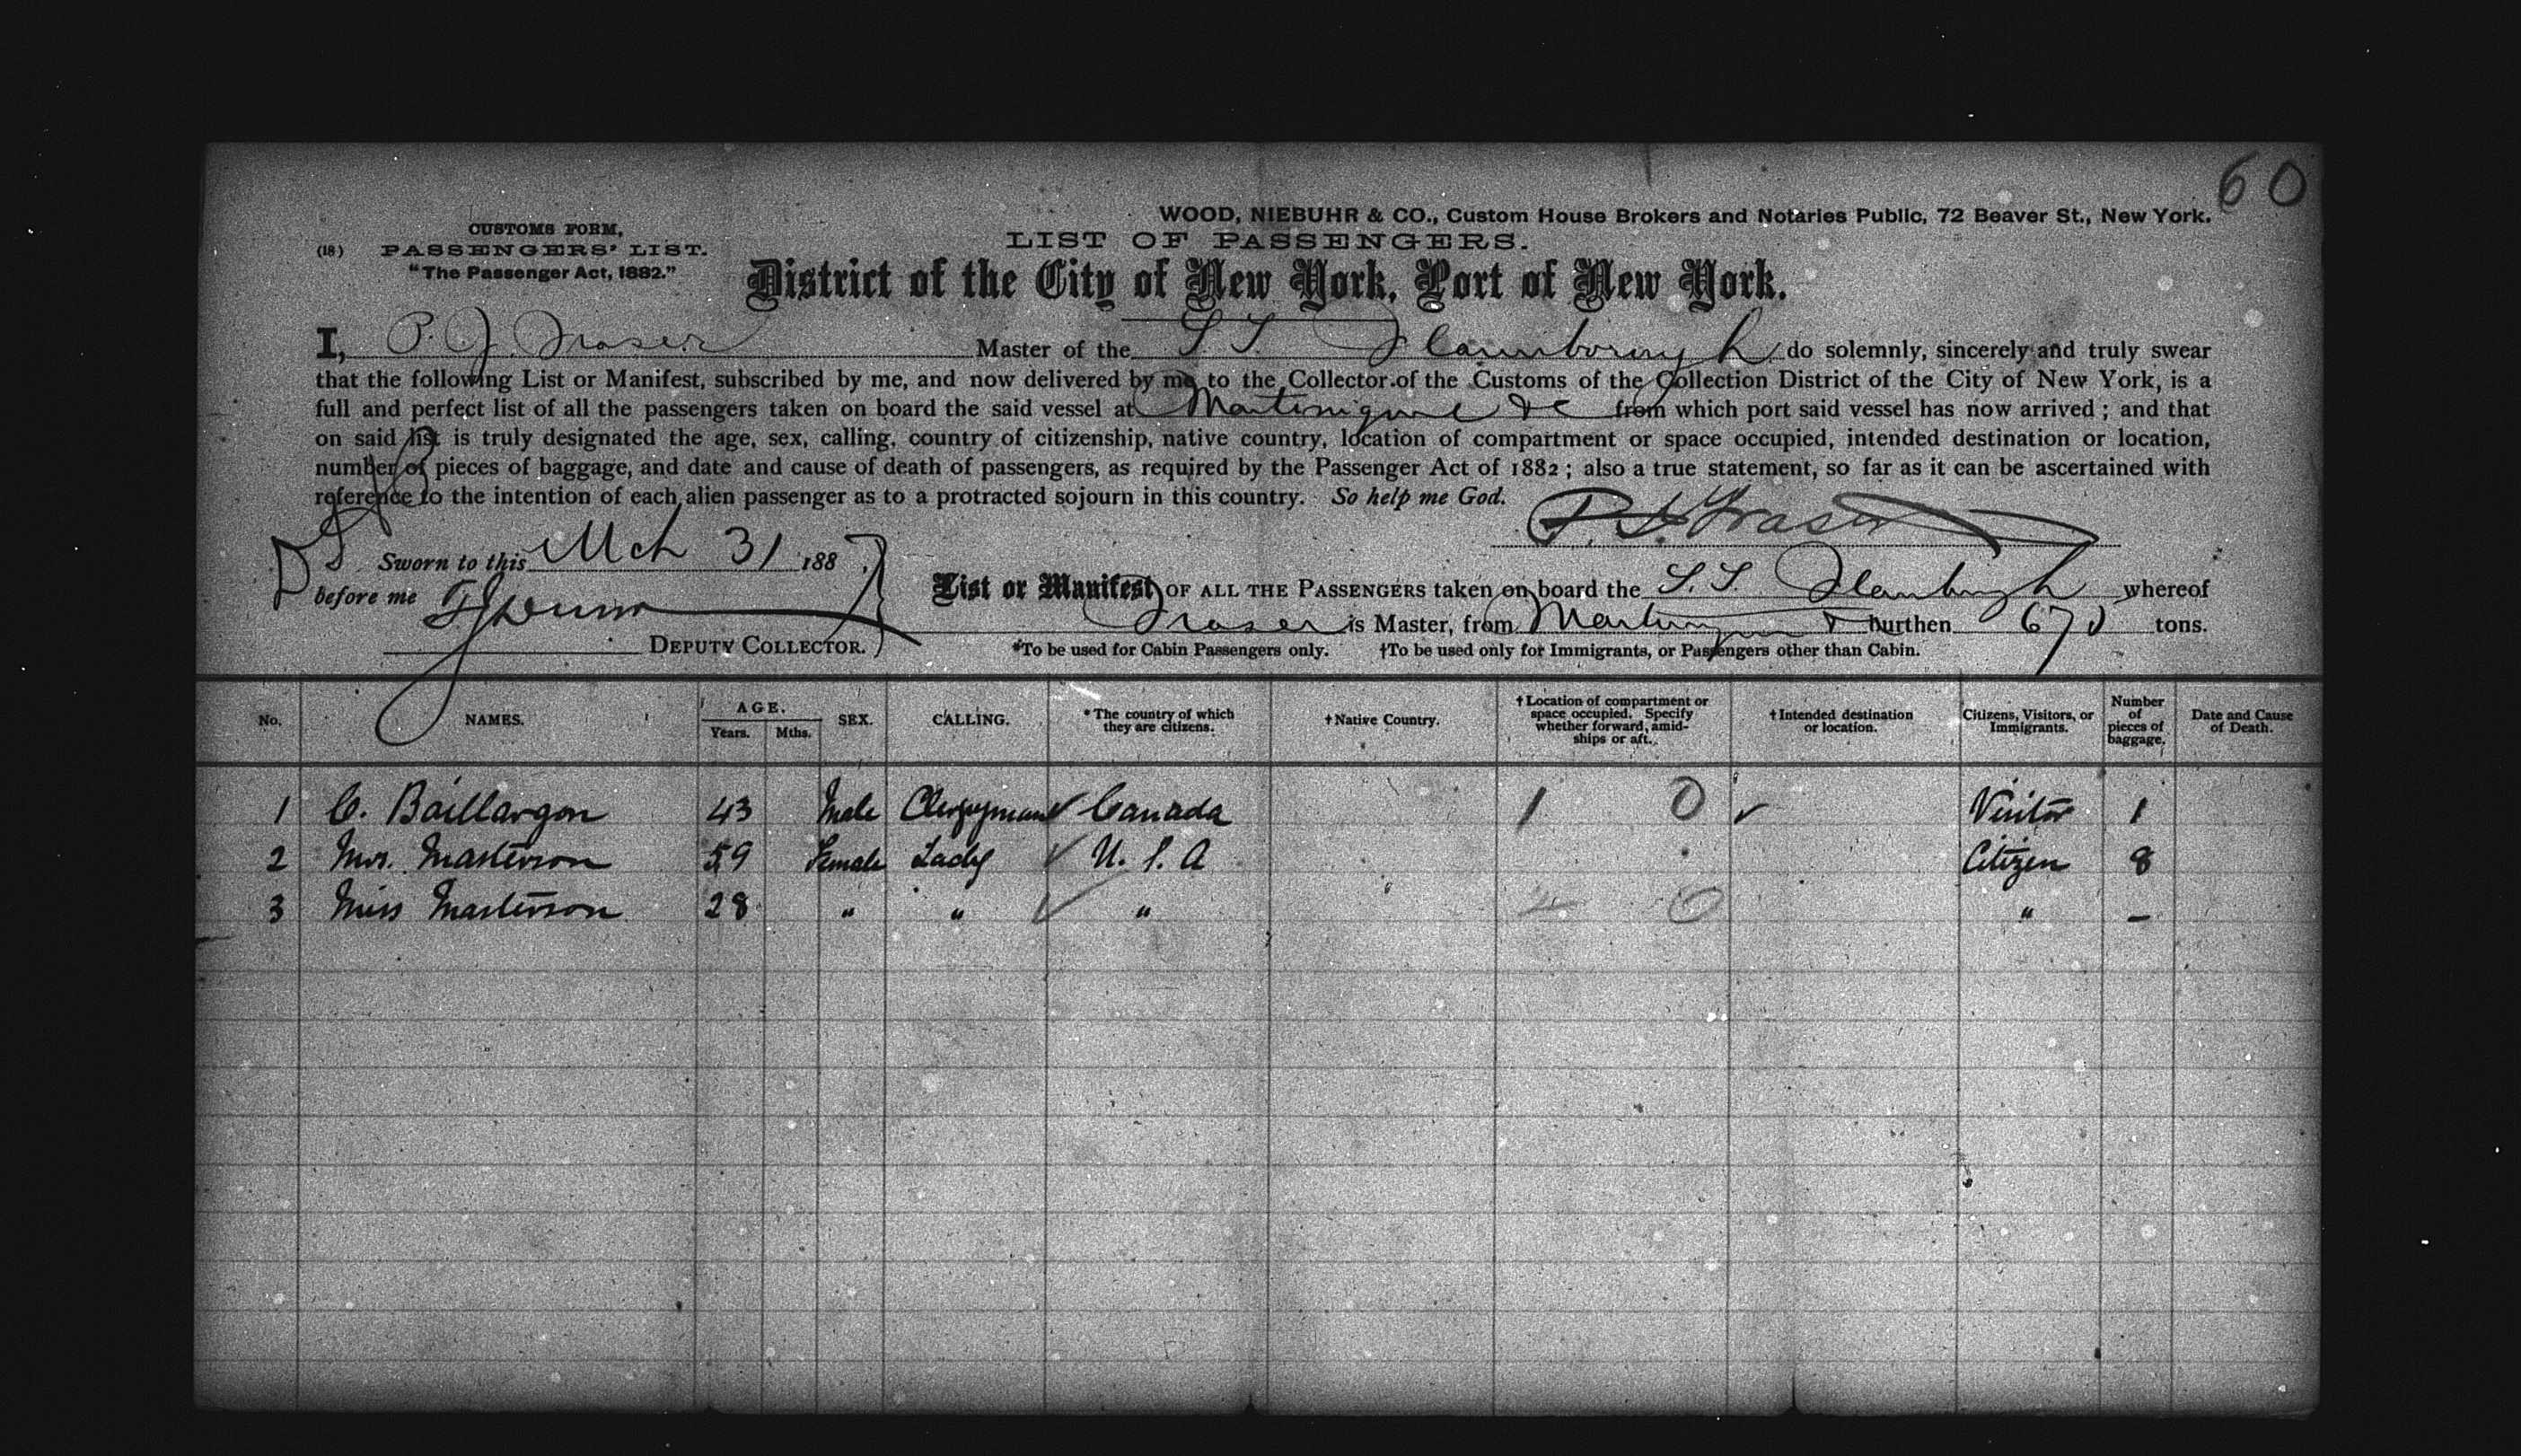 60
WOOD, NIEBUHR & CO., Custom House Brokers and Notaries Public, 72 Beaver St., New York.
CUSTOMS FORM,
(18) PASSENGERS' LIST.
"The Passenger Act, 1882."
LIST OF PASSENGERS.
District of the City of New York, Port of New York.
I, P. J. Fraser Master of the S. S. Flamborough do solemnly, sincerely and truly swear
that the following List or Manifest, subscribed by me, and now delivered by me to the Collector of the Customs of the Collection District of the City of New York, is a
full and perfect list of all the passengers taken on board the said vessel at Martinique &c from which port said vessel has now arrived; and that
on said list is truly designated the age, sex, calling, country of citizenship, native country, location of compartment or space occupied, intended destination or location,
number of pieces of baggage, and date and cause of death of passengers, as required by the Passenger Act of 1882; also a true statement, so far as it can be ascertained with
reference to the intention of each alien passenger as to a protracted sojourn in this country. So help me God.
Fraser
Sworn to this Mch 31 188
before me
DEPUTY COLLECTOR.
List or Manifest OF ALL THE PASSENGERS taken on board the S. S. Flamborough whereof
Fraser is Master, from Martinique & burthen tons.
*To be used for Cabin Passengers only. †To be used only for Immigrants, or Passengers other than Cabin.
No. NAMES. AGE. Years. Mths. SEX. CALLING. *The country of which they are citizens. †Native Country. †Location of compartment or space occupied. Specify whether forward, amidships or aft. †Intended destination or location. Citizens, Visitors, or Immigrants. Number of pieces of baggage. Date and Cause of Death.
1 C. Baillargon 43 Male Clergyman ✓ Canada 1 0 ✓ Visitor 1
2 Mrs. Masterson 59 Female Lady ✓ U. S. A Citizen 8
3 Miss Masterson 28 " " ✓ " 0 " –